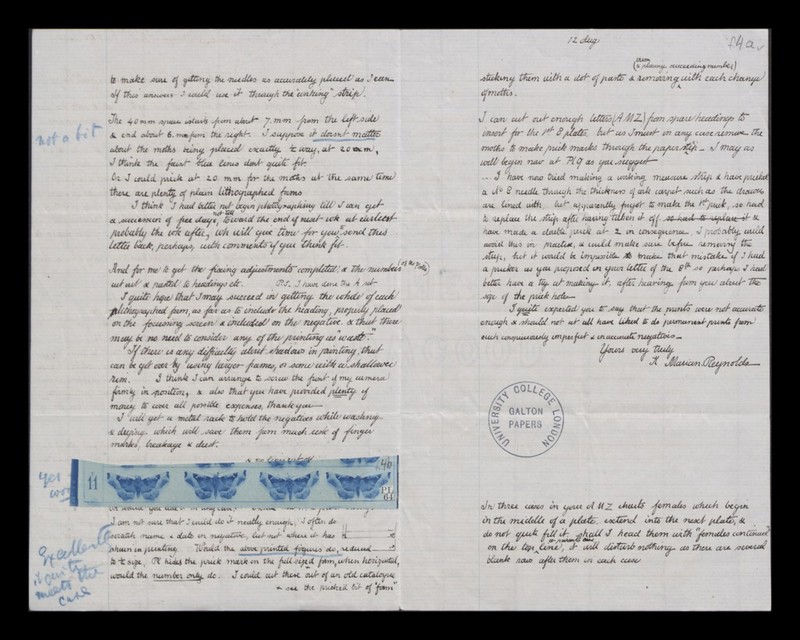 to make sure of getting the needles as accurately placed as I can
If this answers I could use it through the "working" strip.
The 40 mm space starts from about 7 mm from the left side
& end about 6 mm from the right. I suppose it doesnt matter
about the moths being placed exactly to way, at 20 mm,
I think the faint blue lines dont quite fit.
Or I could prick at 20 mm for the moths at the same time
there are plenty of plain lithographed forms
I think I had better not begin photographing till I can get
a succession of free days, toward the end of next wk at earliest
probably the wk after, wh will give time for you to send this
letter back, perhaps, with comments if you think fit.
not a bit
And for me to get the fixing adjustments completed & the numbers (of the Plates)
cut out & pasted to headings etc. P.S. I have done the A set
I quite hope that I may succeed in getting the whole of each
lithographed form, as far as to include the heading, properly placed
on the focussing screen & included on the negative & that there
may be no need to consider any of the printing as "waste".
If there is any difficulty about shadows in printing, that
can be got over by using larger frames, or some with a shallower
rim. I think I can arrange to screw the front of my camera
firmly in position, & also that you have provided plenty of
money to cover all possible expenses, thank you
I will get a metal rack to hold the negatives while washing
& drying which will save them from much risk of finger
marks, breakage & dust.
11
4b
PL
61
I am not sure that I could do it neatly enough, I often do
scratch name & date on negative, but not where it has
shewn in printing. Would the above printed figures do, reduced
to ½ size, It hides the prick mark on the full sized form, when horizontal,
would the number only do. I could cut these out of an old catalogue
& see the pricked bit of "form"
Excellent
it quite
meets the
case
12 Aug
f4a v
(& placing succeeding number)
sticking them with a dot of paste & removing with each change
of moths.
I can cut out enough letters (A MZ) from spare headings to
insert for the 1st 8 plates, but as I must in any case remove the
moths to make prick marks through the paper strip I may as
well begin now at Pl 9 as you suggest
I have now tried making a working measure strip & have pricked
a No 8 needle through the thickness of oak carpet such as the drawers
are lined with but apparently forgot to make the 1st prick, so had
to replace the strip after having taken it off &
have made a double prick at 2 in consequence. I probably could
avoid this in practice, & could make sure before removing the
strip, but it would be impossible to make that mistake if I had
a pricker as you proposed in your letter of the 8th so perhaps I had
better have a try at making it, after hearing from you about the
size of the prick hole
I quite expected you to say that the prints were not accurate
enough & should not at all have liked to do permanent prints from
such imperfect & inaccurate negatives
Yours very truly
K Marian Reynolds
UNIVERSITY COLLEGE LONDON
GALTON
PAPERS
In three cases in your A MZ charts females which begin
in the middle of a plate, extend into the next plate, &
do not quite fill it, shall I head them with "females continued"
on the top line, it will disturb nothing as there are several
blank rows after them in each case